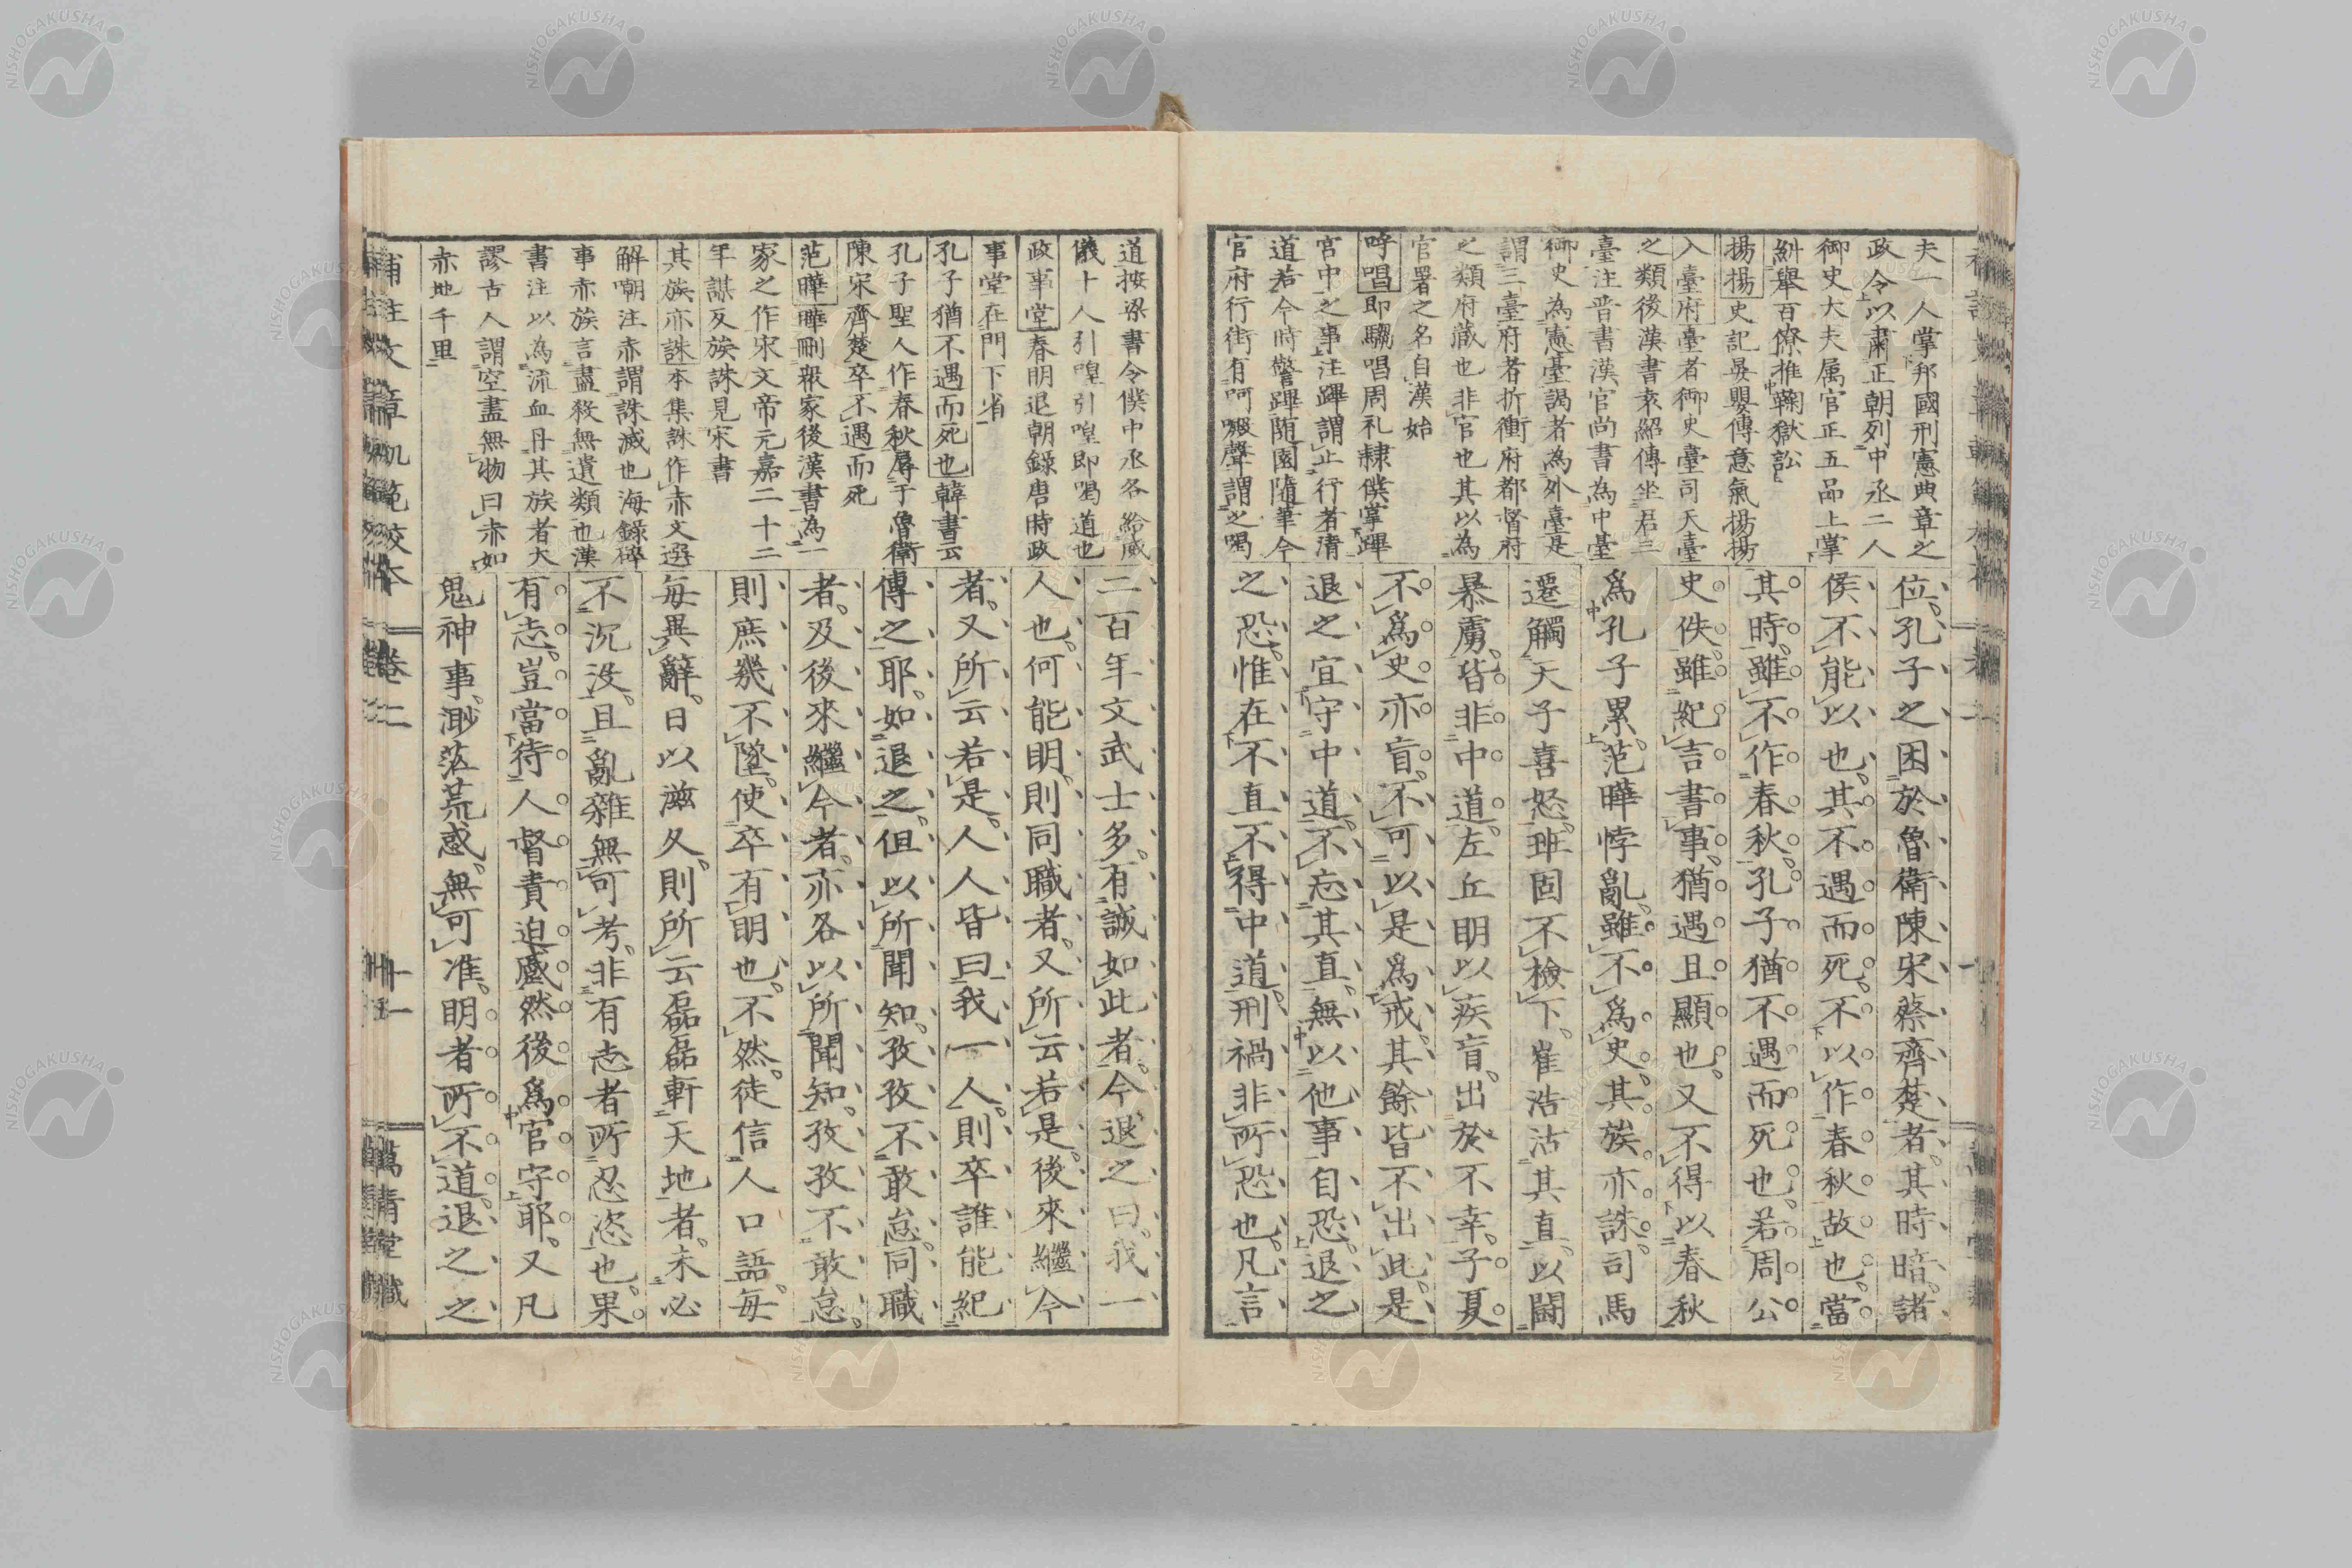 夫一人掌邦國刑憲典章之
政令以肅正朝列中丞二人
御史大夫属官正五品上掌
糾舉百僚推鞫獄訟
揚揚史記晏嬰傳意氣揚揚
入臺府臺者御史臺司天臺
之類後漢書袁紹傳坐召三
臺注晋書漢官尚書為中臺
御史為憲臺謁者為外臺是
謂三臺府者折衝府都督府
之類府藏也非官也其以為
官署之名自漢始
呼唱即騶唱周礼隷僕掌蹕
宮中之事注蹕謂止行者清
道若今時警蹕随園隨筆今
官府行街有呵喝聲謂之喝
位孔子之困於魯衛陳宋蔡齊楚者其時暗諸
侯不能以也其不遇而死不以作春秋故也當
其時雖不作春秋孔子猶不遇而死也若周公
史佚雖紀言書事猶遇且顯也又不得以春秋
爲孔子累范曄悖亂雖不爲史其族亦誅司馬
遷觸天子喜怒班固不檢下崔浩沽其直以鬪
暴虜皆非中道左丘明以疾盲出於不幸子夏
不爲史亦盲不可以是爲戒其餘皆不出此是
退之宜守中道不忘其直無以他事自恐退之
之恐惟在不直不得中道刑禍非所恐也凡言
道按梁書令僕中丞各給威
儀十人引喤引喤即喝道也
政事堂春明退朝錄唐時政
事堂在門下省
孔子猶不遇而死也韓書云
孔子聖人作春秋辱于魯衛
陳宋齊楚卒不遇而死
范曄曄刪衆家後漢書為一
家之作宋文帝元嘉二十二
年謀反族誅見宋書
其族亦誅本集誅作赤文選
解嘲注赤謂誅滅也海錄碎
事赤族言盡殺無遺類也漢
書注以為流血丹其族者大
謬古人謂空盡無物曰赤如
赤地千里
二百年文武士多有誠如此者今退之曰我一
人也何能明則同職者又所云若是後來繼今
者又所云若是人人皆曰我一人則卒誰能紀
傳之耶如退之但以所聞知孜孜不敢怠同職
者及後來繼今者亦各以所聞知孜孜不敢怠
則庶幾不墜使卒有明也不然徒信人口語每
每異辭日以滋久則所云磊磊軒天地者未必
不沉没且亂雜無可考非有志者所忍恣也果
有志豈當待人督責迫蹙然後爲官守耶又凡
鬼神事渺茫荒惑無可准明者所不道退之之
補注文章軌範校本 卷二 十一 萬青堂藏